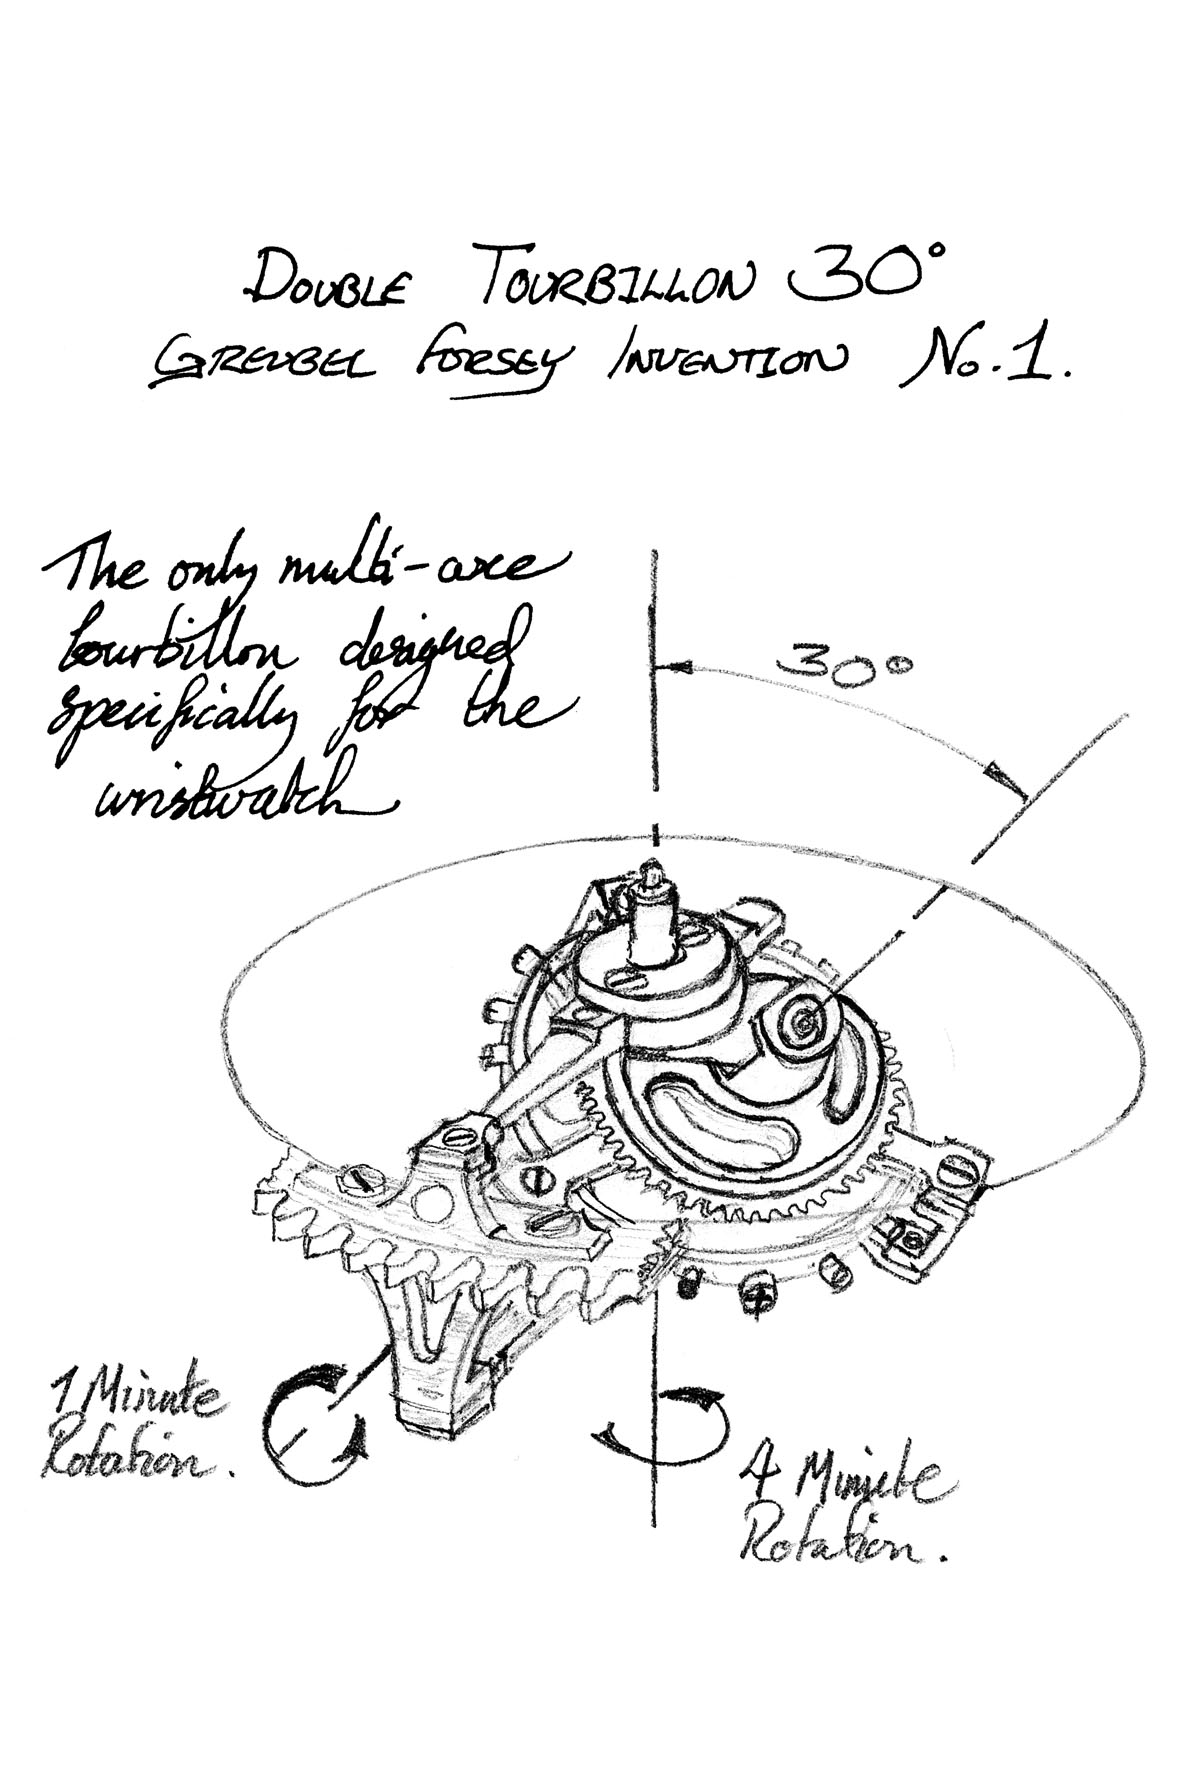 DOUBLE TOURBILLON 30°
GREUBEL FORSEY INVENTION No.1.
The only multi-axe
tourbillon designed
specifically for the
wristwatch
30°
1 Minute
Rotation.
4 Minute
Rotation.